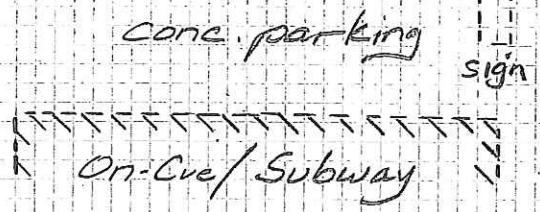 conc. parking
sign
On-Cue/Subway